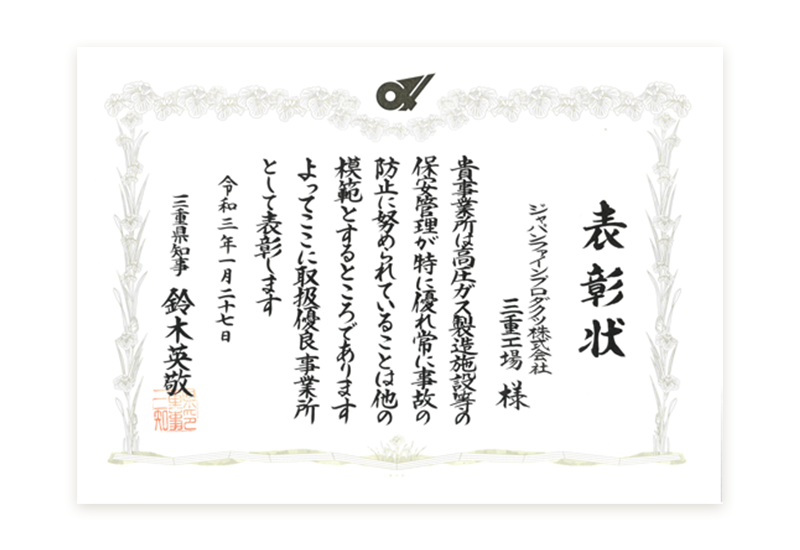 表彰状
ジャパンファインプロダクツ株式会社
三重工場 様
貴事業所は高圧ガス製造施設等の
保安管理が特に優れ常に事故の
防止に努められていることは他の
模範とするところであります
よってここに取扱優良事業所
として表彰します
令和三年一月二十七日
三重県知事 鈴木英敬